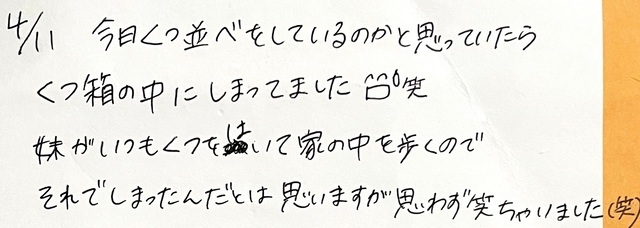 4/11 今日くつ並べをしているのかと思っていたら
くつ箱の中にしまってました 笑
妹がいつもくつをはいて家の中を歩くので
それでしまったんだとは思いますが思わず笑ちゃいました(笑)